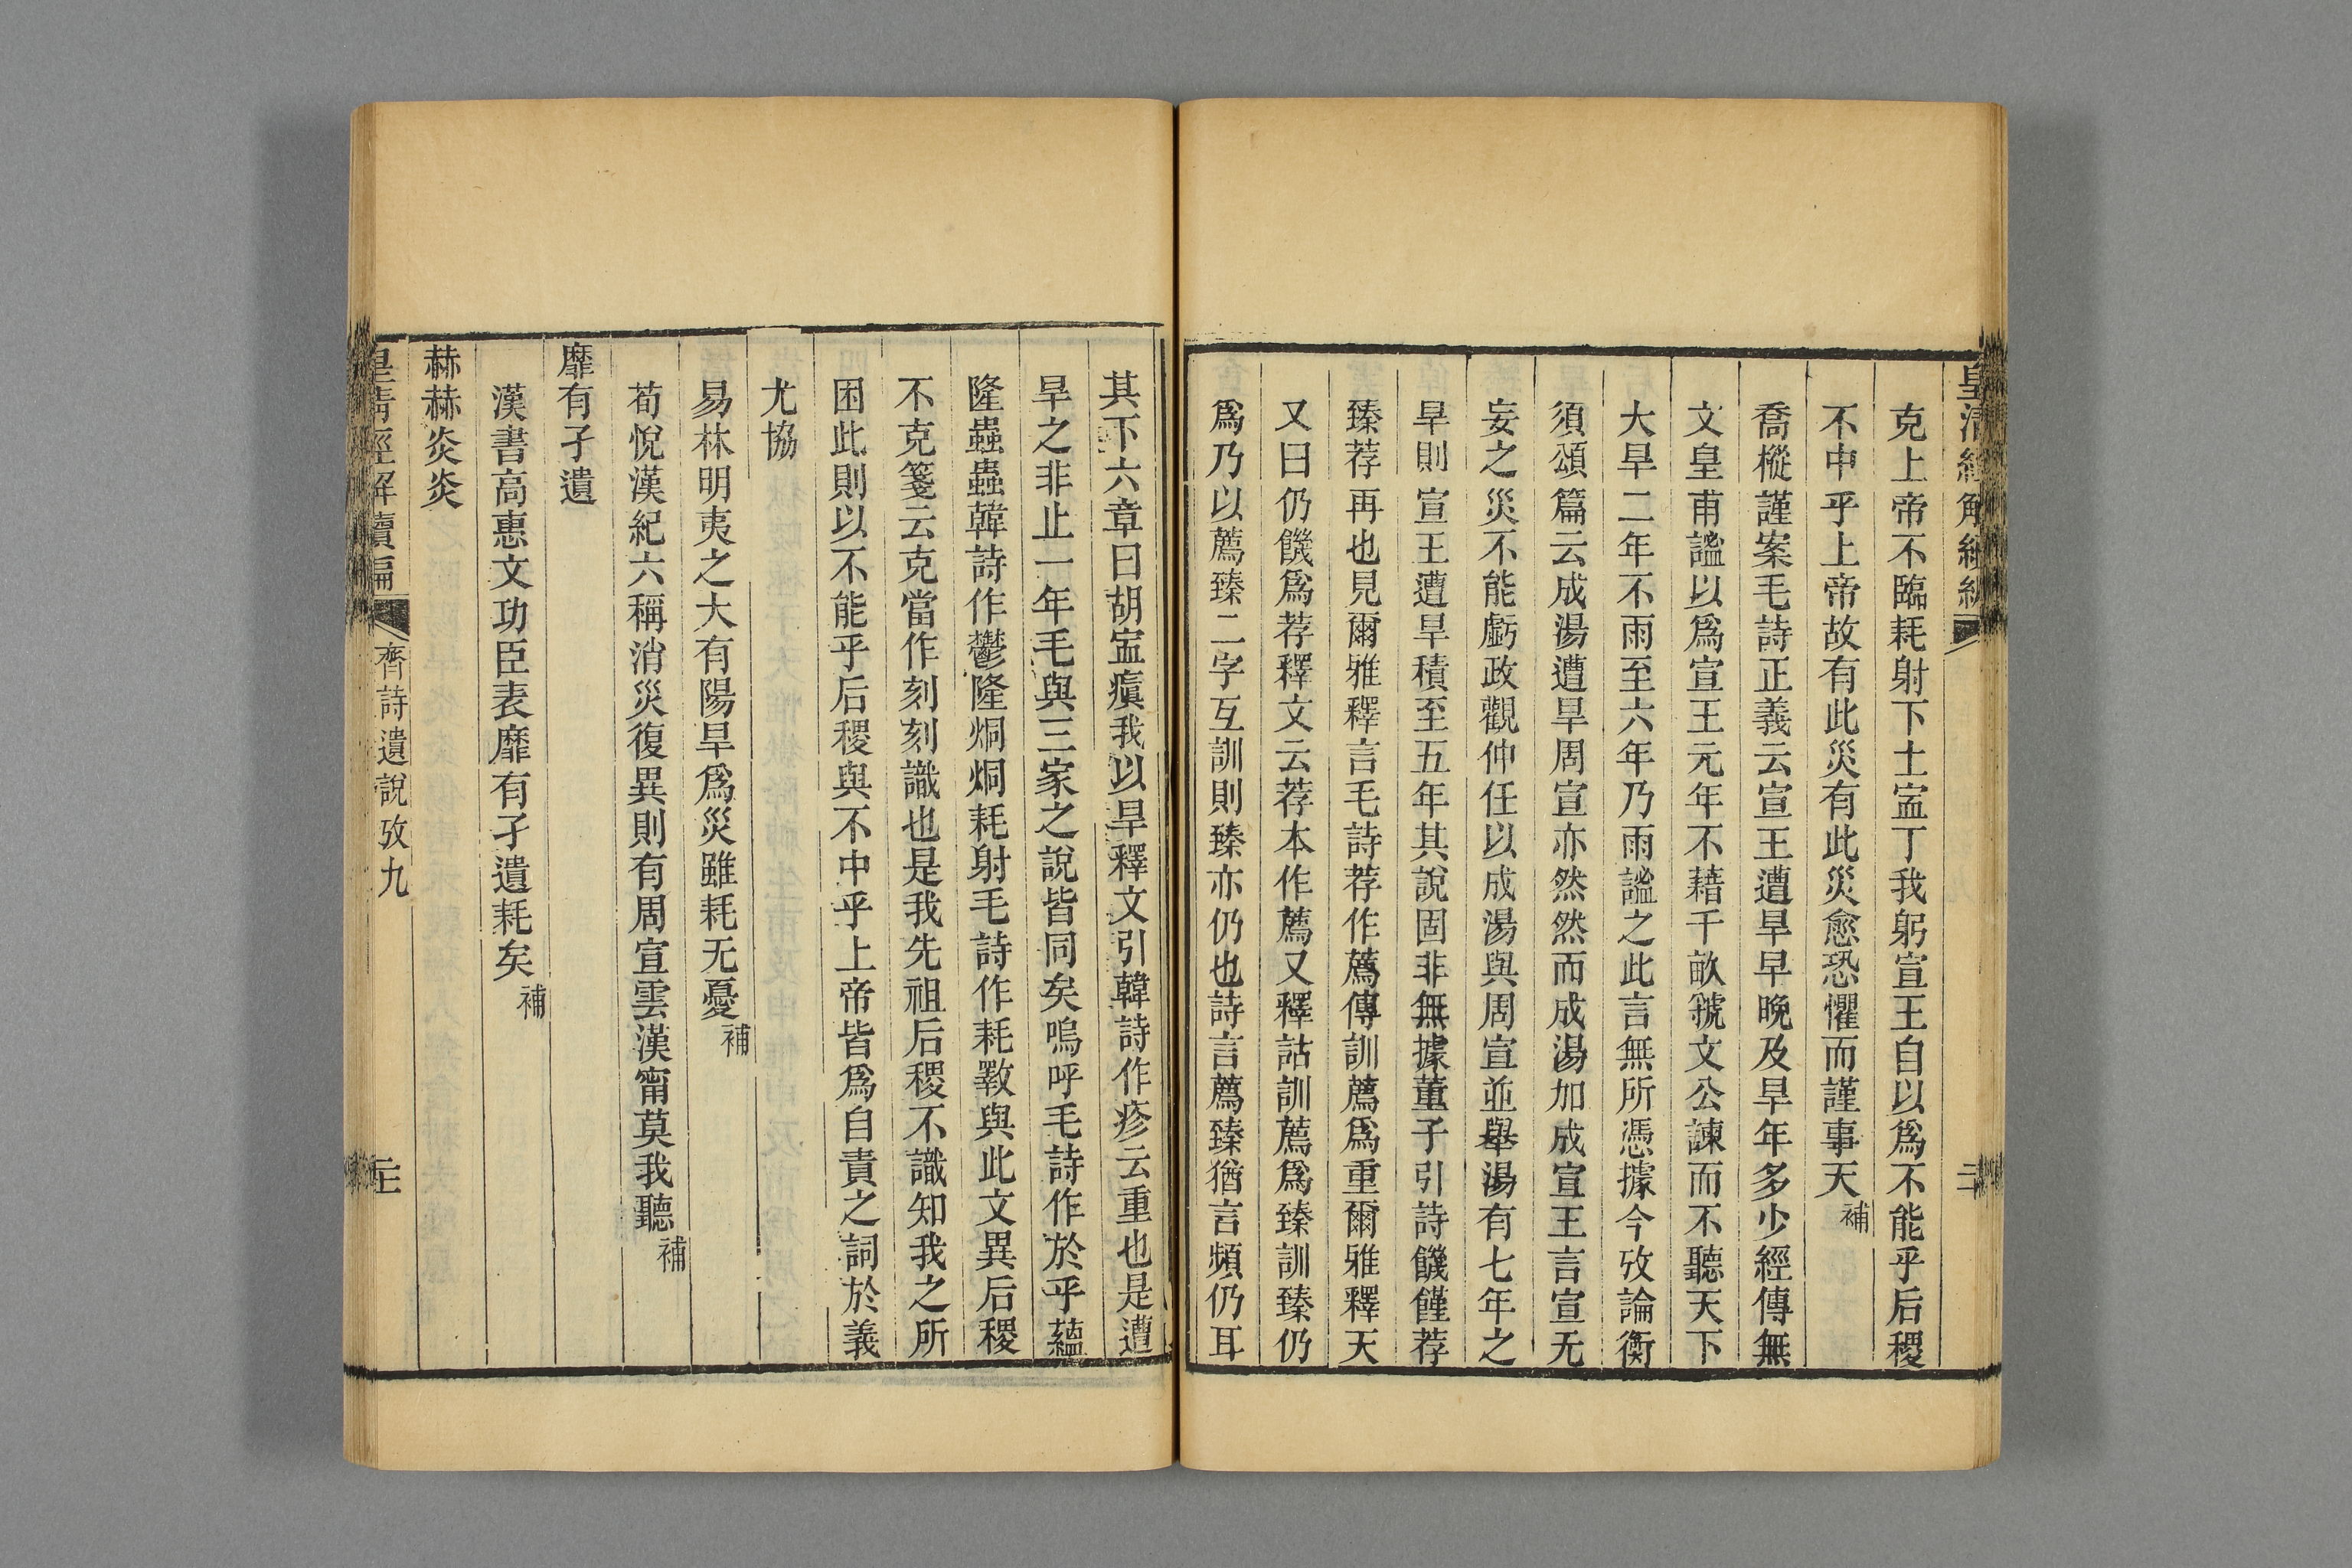 皇清經解續編
克上帝不臨耗射下土寍丁我躬宣王自以爲不能乎后稷
不中乎上帝故有此災有此災愈恐懼而謹事天補
喬樅謹案毛詩正義云宣王遭旱早晚及旱年多少經傳無
文皇甫謐以爲宣王元年不藉千畝虢文公諫而不聽天下
大旱二年不雨至六年乃雨謐之此言無所憑據今攷論衡
須頌篇云成湯遭旱周宣亦然然而成湯加成宣王言宣无
妄之災不能虧政觀仲任以成湯與周宣並舉湯有七年之
旱則宣王遭旱積至五年其說固非無據董子引詩饑饉荐
臻荐再也見爾雅釋言毛詩荐作薦傳訓薦爲重爾雅釋天
又曰仍饑爲荐釋文云荐本作薦又釋詁訓薦爲臻訓臻仍
爲乃以薦臻二字互訓則臻亦仍也詩言薦臻猶言頻仍耳
其下六章曰胡寍瘨我以旱釋文引韓詩作疹云重也是遭
旱之非止一年毛與三家之說皆同矣嗚呼毛詩作於乎蘊
隆蟲蟲韓詩作鬱隆烔烔耗射毛詩作耗斁與此文異后稷
不克箋云克當作刻刻識也是我先祖后稷不識知我之所
困此則以不能乎后稷與不中乎上帝皆爲自責之詞於義
尤協
易林明夷之大有陽旱爲災雖耗无憂補
荀悅漢紀六稱消災復異則有周宣雲漢甯莫我聽補
靡有孑遺
漢書高惠文功臣表靡有孑遺耗矣補
赫赫炎炎
皇清經解續編
齊詩遺說攷九